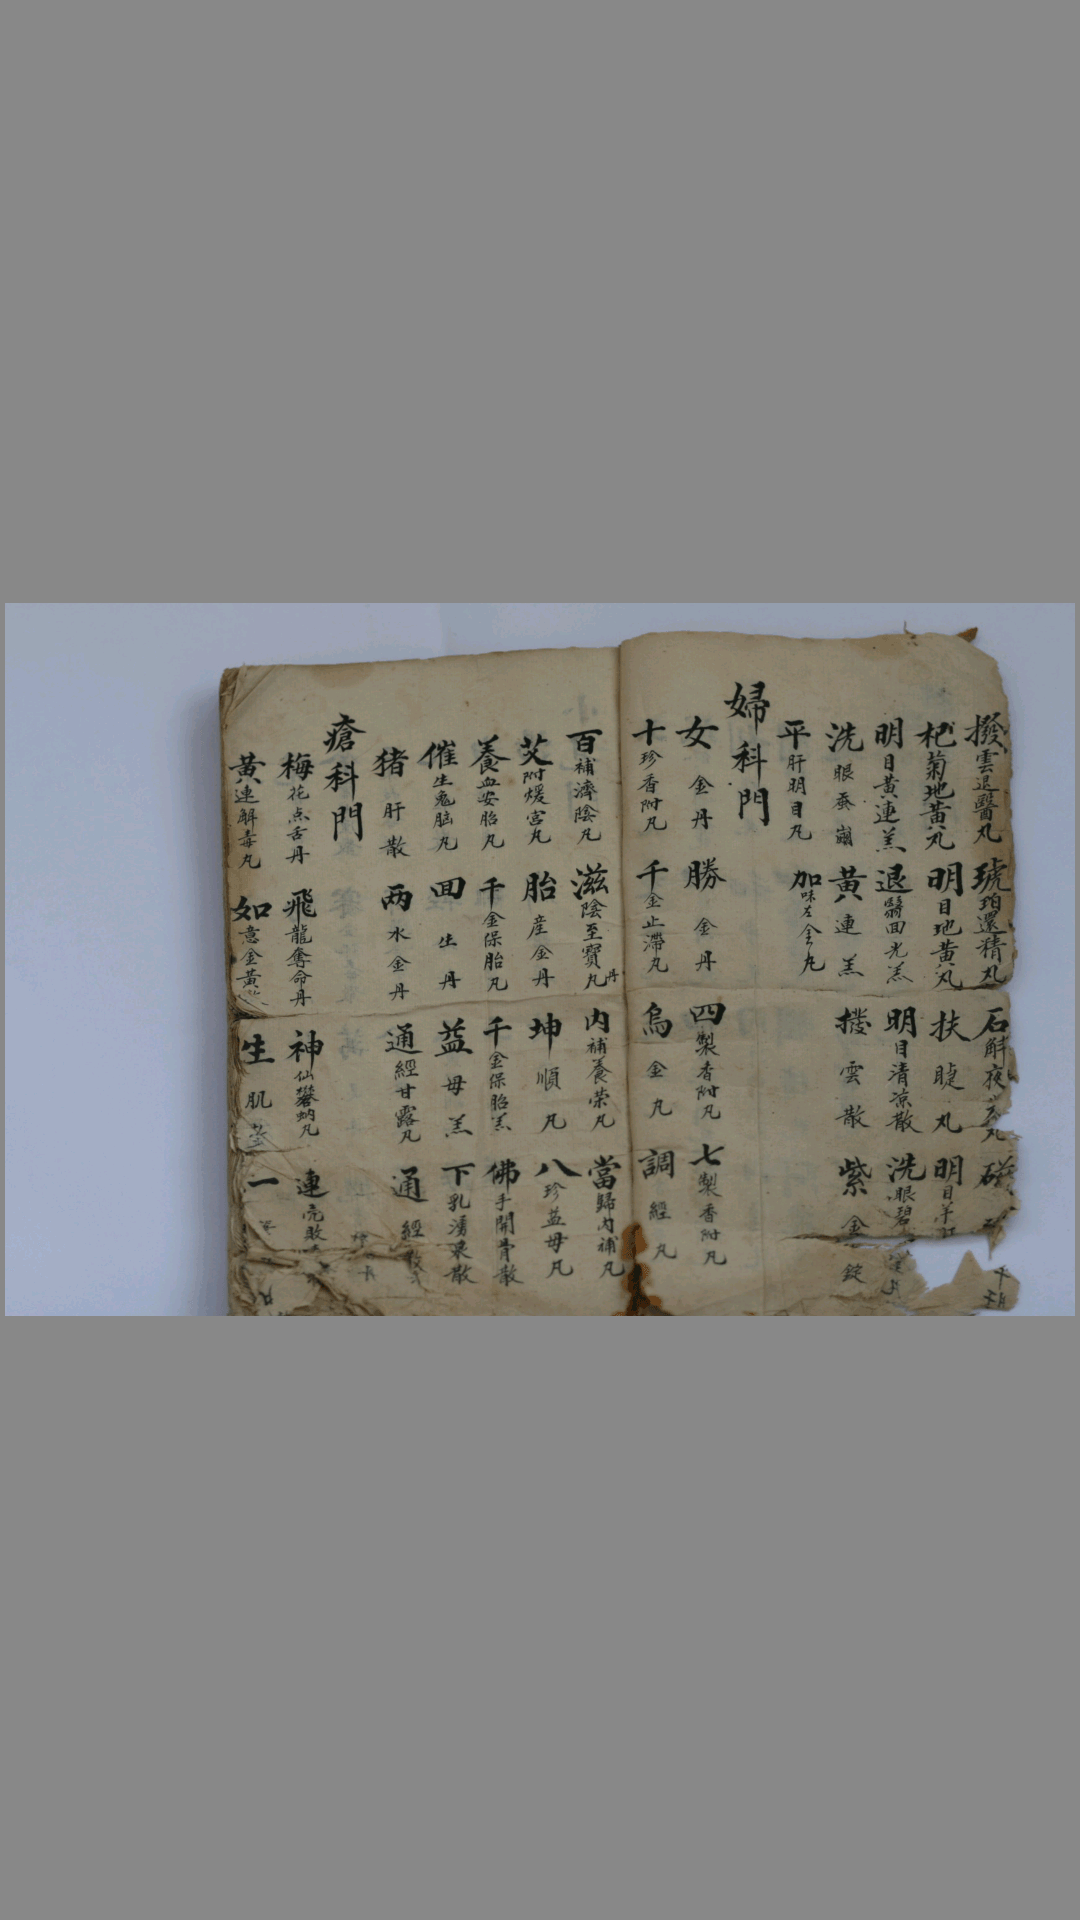 撥雲退翳丸 琥珀還精丸 石斛夜 磁
杞菊地黃丸 明目地黃丸 扶睫丸 明目羊肝
明目黃連羔 退翳回光羔 明目清凉散 洗眼碧
洗眼蚕繭 黃連羔 撥雲散 紫金錠
平肝明目丸 加味左金丸
婦科門
女金丹 勝金丹 四製香附丸 七製香附丸
十珍香附丸 千金止滯丸 烏金丸 調經丸
百補濟陰丸 滋陰至寶丸丹 內補養荣丸 當歸內補丸
艾附煖宮丸 胎產金丹 坤順丸 八珍益母丸
養血安胎丸 千金保胎丸 千金保胎羔 佛手開骨散
催生兔腦丸 回生丹 益母羔 下乳湧泉散
猪肝散 两水金丹 通經甘露丸 通經
瘡科門
梅花点舌丹 飛龍奪命丹 神仙蟾蚋丸 連壳敗
黃連解毒丸 如意金黃 生肌 一